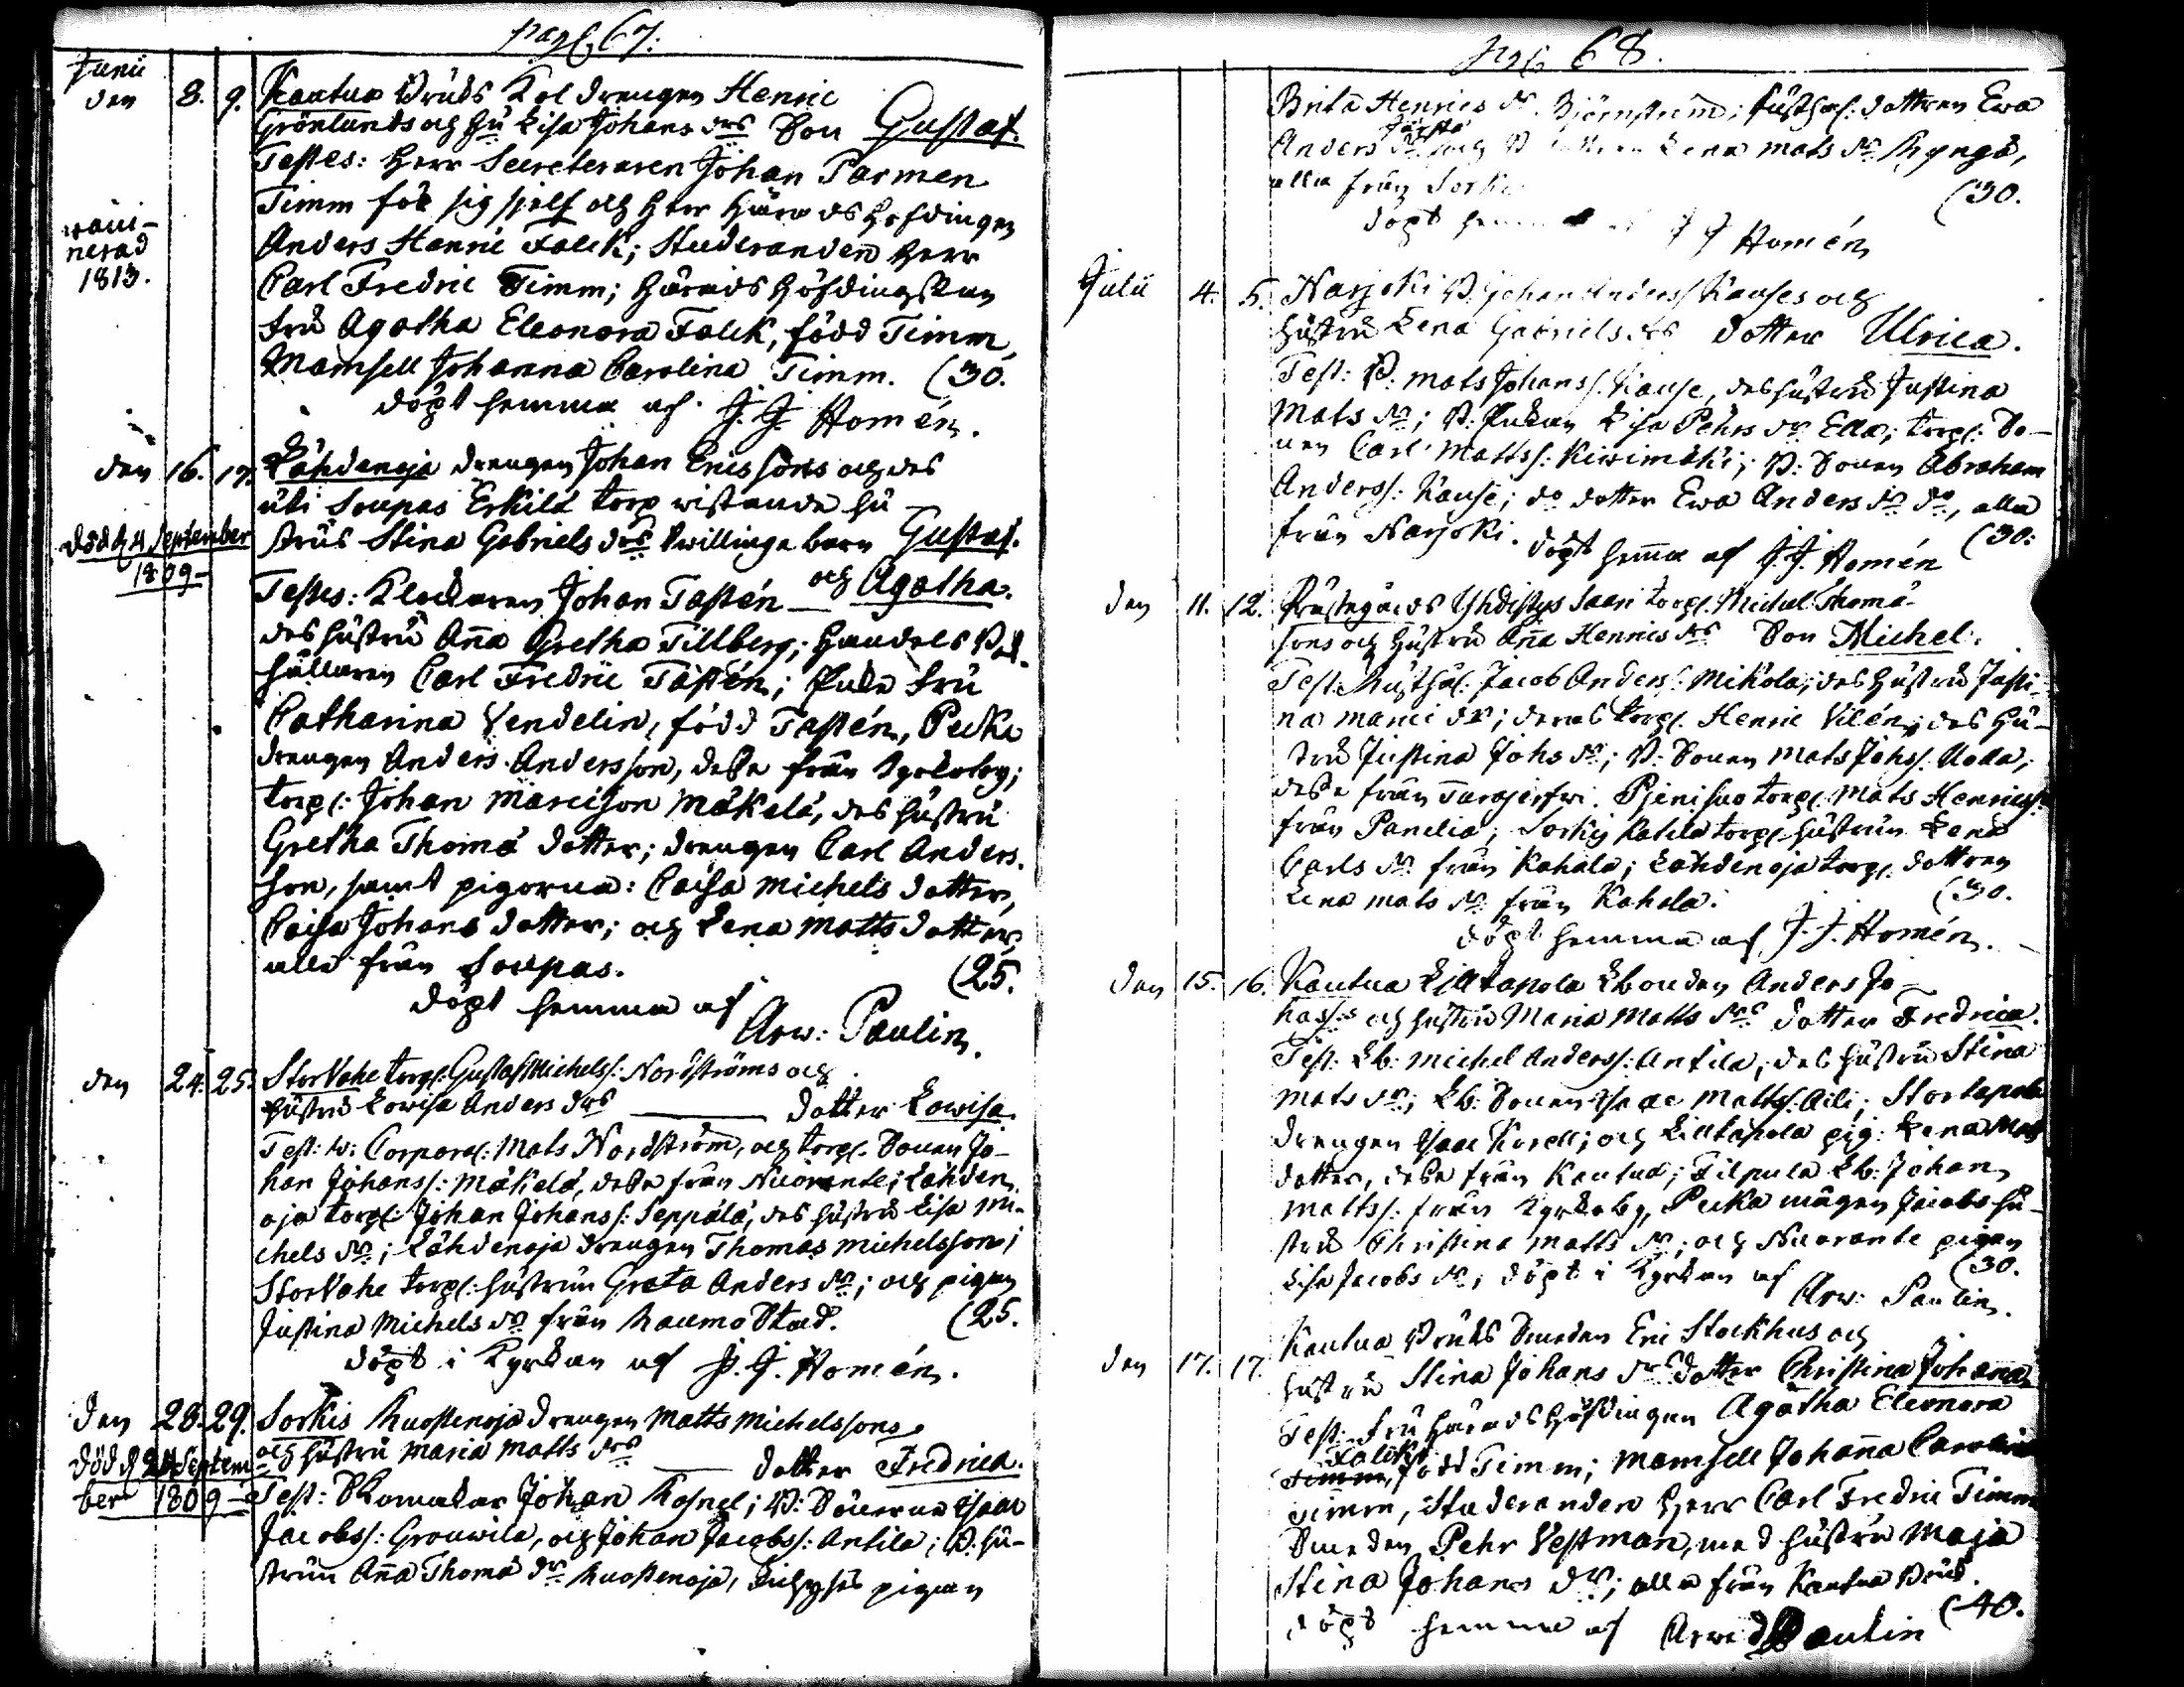 pag. 67.
Junii
den 8. 9. Kautua Bruks Koldrengen Henric
Grönlunds och Hu Lisa Johans drs Son Gustaf.
Testes: Herr Secreteraren Johan Parmen
Timm för sig sjelf och Herr Härads Höfdingen
vaccinerad
1813.
Anders Henric Falck; Studeranden Herr
Carl Fredric Timm; Härads Höfdingskan
Fru Agatha Eleonora Falck, född Timm,
Mamsell Johanna Carolina Timm. (30.
döpt hemma af J. J. Homén.
den 16. 17. Lähdenoja drengen Johan Ericssons och des
uti Soupas Erkilä torp wistande hu
död d 4 September
1809
strus Stina Gabriels drs twillinge barn Gustaf.
och Agatha.
Testes: Klockaren Johan Tastén
des hustru Aña Gretha Tillberg; Handels
hållaren Carl Fredric Tastén; Enke Fru
Catharina Vendelin, född Tastén, Pecka
drengen Anders Andersson, desse från Kyrkoby;
torp: Johan Marcisson Mäkelä, des hustru
Gretha Thomä dotter; drengen Carl Anders
son, samt pigorna: Caisa Michels dotter,
Caisa Johans dotter; och Lena Matts dotter,
alla från Soupas. (25.
döpt hemma af
Arw: Paulin.
den 24. 25. StorVahe torp: Gustaf Michelss: Nordströms och
hustru Lowisa Anders drs dotter Lowisa.
Test: w: Corporal: Mats Nordström, och torp: Sonen Jo-
han Johanss: Mäkelä, desse från Nuorante; Lähden
oja torp: Johan Johanss: Seppälä, des hustru Lisa Mi-
chels dr; Lähdenoja drengen Thomas Michelsson;
StorVahe torp: hustrun Greta Anders dr; och pigan
Justina Michels dr från Raumo Stad. (25.
döpt i Kyrkan af J. J. Homén.
den 28. 29. Sorkis Ruostenoja drengen Matts Michelssons
och hustru Maria Matts drs dotter Fredrica.
död d 24 Septem
ber 1809
Test: Skomakar Johan Kosnel; B: Sönerne Isaac
Jacobss: Grouwila, och Johan Jacobss: Antila; B: hu-
strun Aña Thomä dr Ruostenoja, pigan
pag. 68.
Brita Henrics dr Björnström; husthål: dottren Ewa
Anders dr och Lena Mats dr
alla från Sorkis (30.
döpt hemma af J J Homén
Julii 4. 5. Narjoki B: Johan Anderss Kauses och
hustru Lena Gabriels drs dotter Ulrica.
Test: B: Mats Johanss: Kause, des hustru Justina
Mats dr; B: Enkan Lisa Pehrs dr Ella; torp: So-
nen Carl Mattss: Kiwimäki; B: Sonen Abraham
Anderss: Kause; do dotter Ewa Anders dr do, alla
från Narjoki. (30:
döpt hemma af J. J. Homén
den 11. 12. Prästegårds Yhdistys Saari torp: Michel Thomä-
sons och hustru Aña Henrics drs Son Michel.
Test: Rusthål: Jacob Anderss: Mikola; des hustru Justi-
na Marci dr; deras torp: Henric Vilén, des hu-
stru Justina Johs dr; B: Sonen Mats Johss: Uolla;
desse från Turajerfwi. Pjenisuo torp: Mats Henricss:
från Panelia; Sorkis Katila torp: hustrun Lena
Carls dr från Kahala; Lähdenoja torp: dottren
Lena Mats dr från Kahala. (30.
döpt hemma af J. J. Homén.
den 15. 16. Kautua Lilltapola Lbonden Anders Jo-
hass:s och hustru Maria Matts drs dotter Fredrica.
Test: Lb: Michel Anderss: Antila; des hustru Stina
Mats dr; Lb: Sonen Isaac Mattss: Aili; Stortapola
drengen Isaac Korell; och Lilltapola pig: Lena Mats
dotter, desse från Kautua; Filpula Lb: Johan
Mattss: från Kyrkoby, Pecka mågen Jacobs hu-
stru Christina Matts dr; och Nuorante pigan
Lisa Jacobs dr; döpt i Kyrkan af (30.
Arw: Paulin.
den 17. 17. Kautua Bruks Smeden Eric Stockhus och
hustru Stina Johans drs dotter Christina Johanna
Test: Fru Härads Höfdingen Agatha Eleonora
Falck, född Timm; Mamsell Johanna Carolina
Timm, Studeranden Herr Carl Fredric Timm
Smeden Pehr Vestman, med hustru Maja
Stina Johans dr; alla från Kautua Bruk.
(40.
döpt hemma af Arwid Paulin